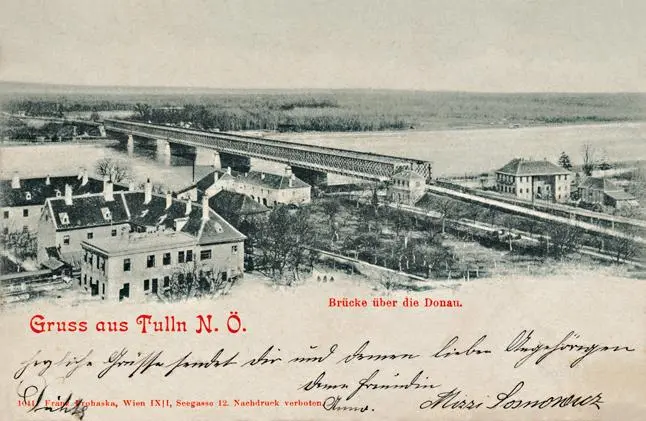 Brücke über die Donau.
Gruss aus Tulln N. Ö.
herzliche Grüsse sendet Dir und deinen lieben Angehörigen
deine Freundin
Anna.
Mizzi Sosnowicz
1041 Franz Prohaska, Wien IX/1, Seegasse 12. Nachdruck verboten.